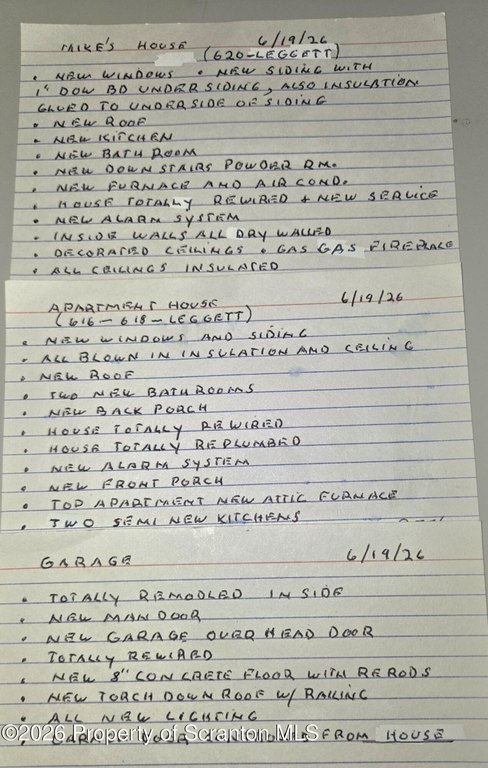 MIKE'S HOUSE 6/19/26
(620-LEGGETT)
• NEW WINDOWS • NEW SIDING WITH
1" DOW BD UNDER SIDING, ALSO INSULATION
GLUED TO UNDERSIDE OF SIDING
• NEW ROOF
• NEW KITCHEN
• NEW BATH ROOM
• NEW DOWNSTAIRS POWDER RM.
• NEW FURNACE AND AIR COND.
• HOUSE TOTALLY REWIRED + NEW SERVICE
• NEW ALARM SYSTEM
• INSIDE WALLS ALL DRY WALLED
• DECORATED CEILINGS • GAS GAS FIREPLACE
• ALL CEILINGS INSULATED
APARTMENT HOUSE 6/19/26
(616-618-LEGGETT)
• NEW WINDOWS AND SIDING
• ALL BLOWN IN INSULATION AND CEILING
• NEW ROOF
• TWO NEW BATHROOMS
• NEW BACK PORCH
• HOUSE TOTALLY REWIRED
• HOUSE TOTALLY REPLUMBED
• NEW ALARM SYSTEM
• NEW FRONT PORCH
• TOP APARTMENT NEW ATTIC FURNACE
• TWO SEMI NEW KITCHENS
GARAGE 6/19/26
• TOTALLY REMODLED IN SIDE
• NEW MAN DOOR
• NEW GARAGE OVER HEAD DOOR
• TOTALLY REWIRED
• NEW 8" CONCRETE FLOOR WITH RERODS
• NEW TORCH DOWN ROOF W/ RAILING
• ALL NEW LIGHTING
FROM HOUSE
©2026 Property of Scranton MLS